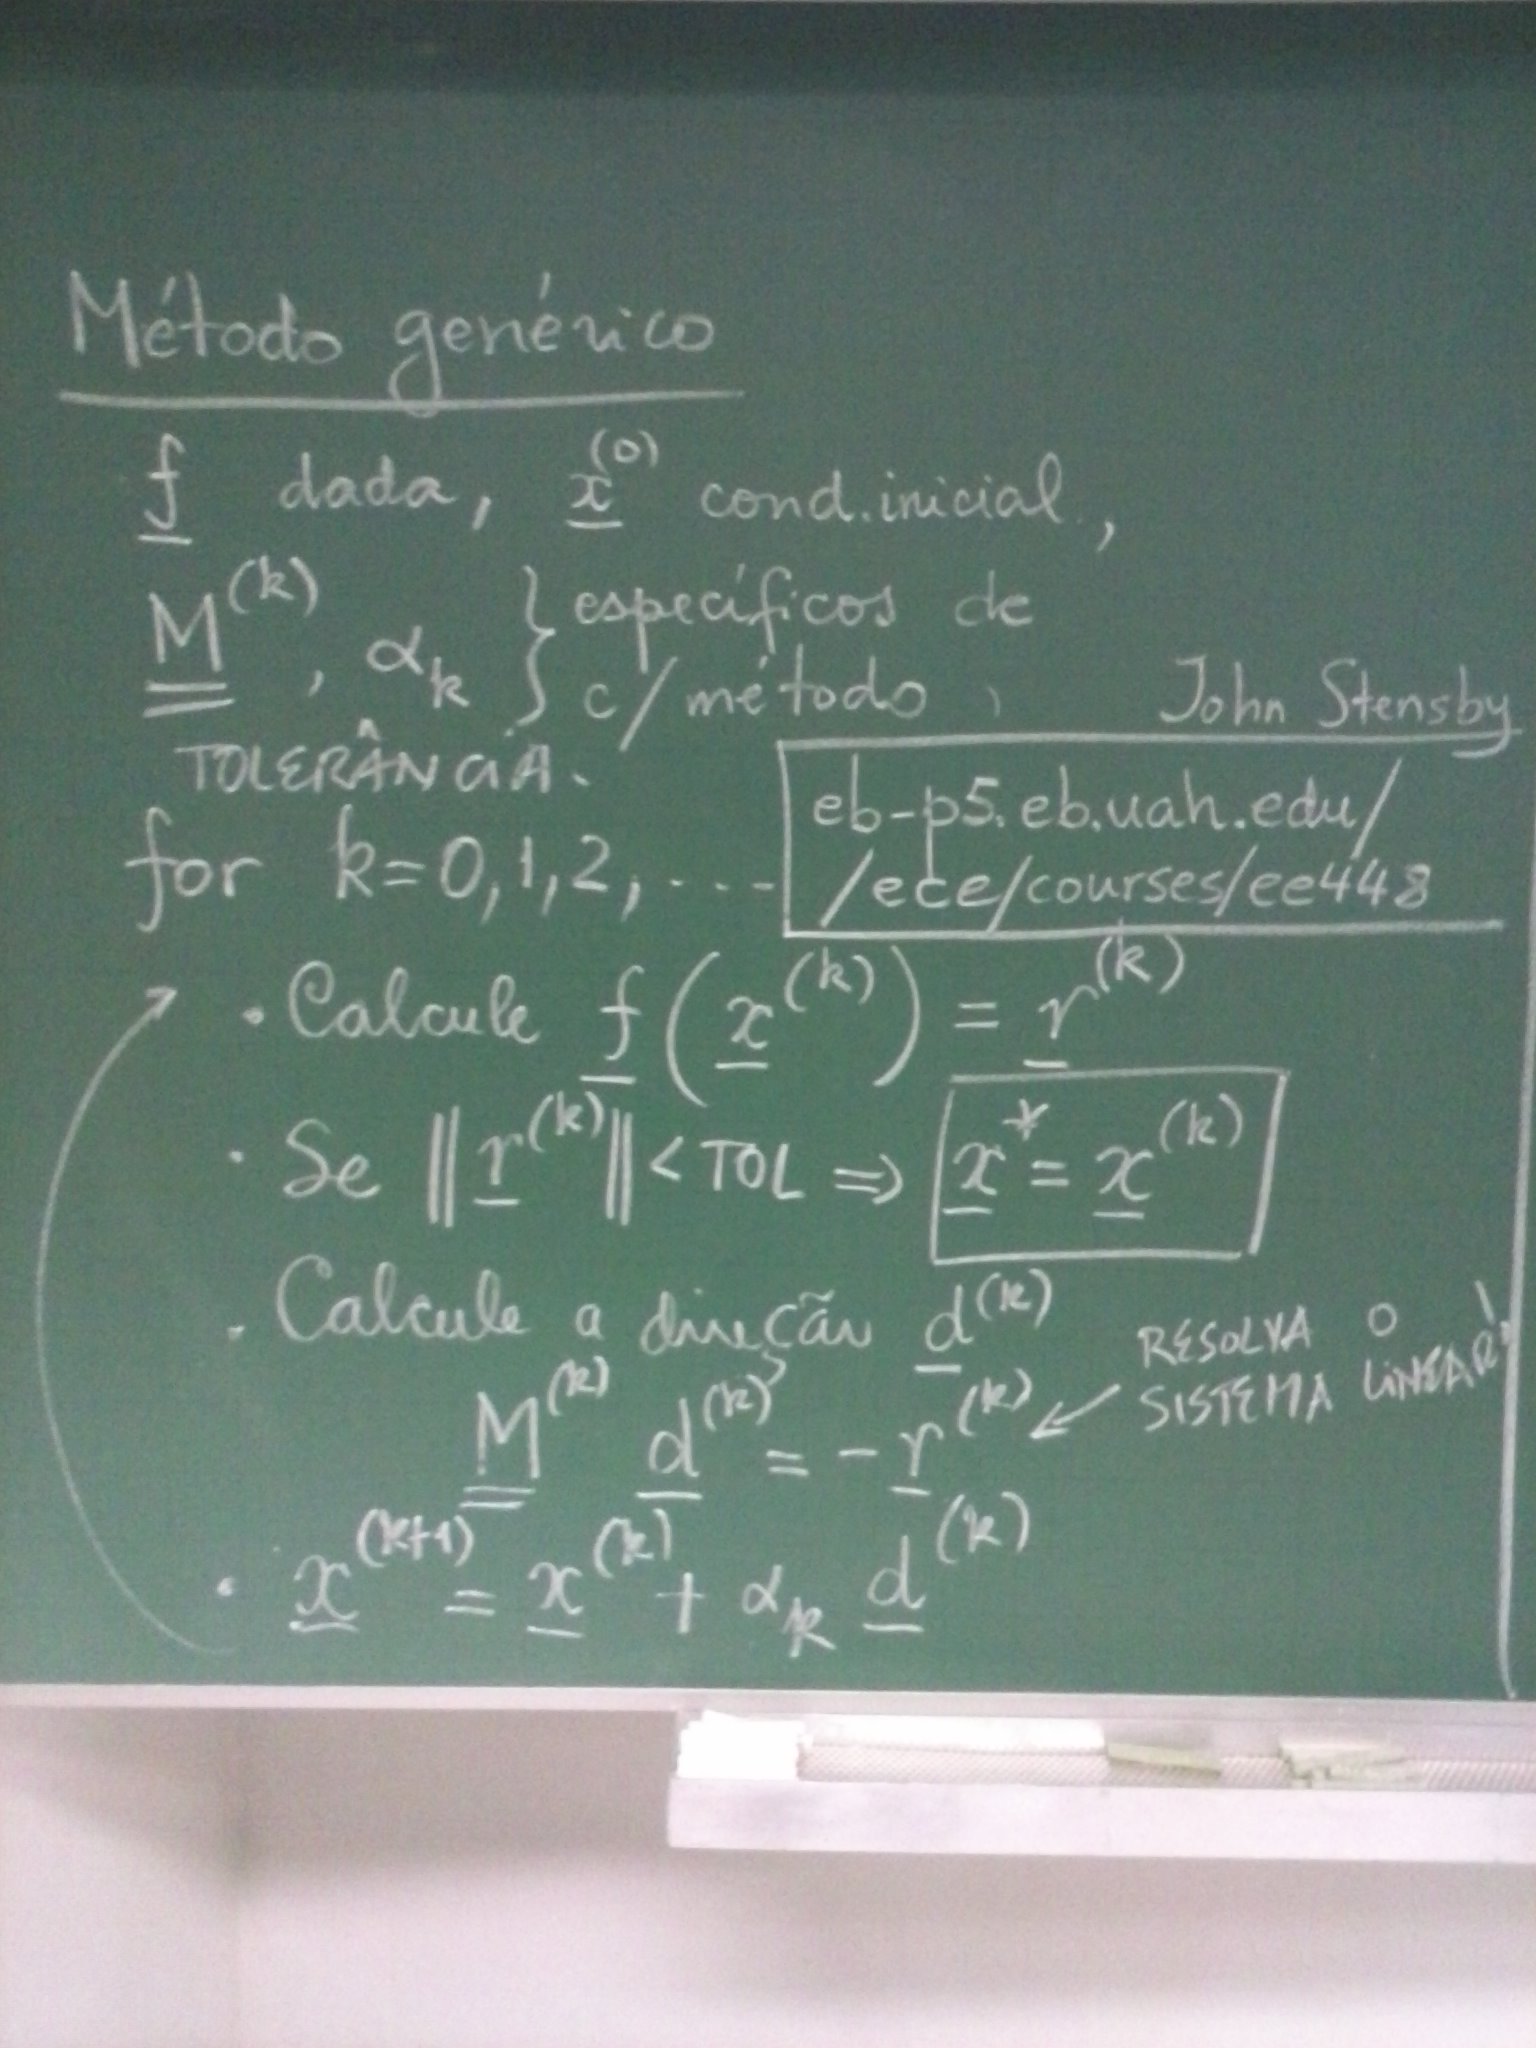 Método genérico
f dada, x^(0) cond. inicial,
M^(k), α_k } específicos de
c/ método,
TOLERÂNCIA.
John Stensby
eb-p5.eb.uah.edu/
/ece/courses/ee448
for k=0,1,2,...
· Calcule f(x^(k)) = r^(k)
· Se ||r^(k)|| < TOL ⇒ x* = x^(k)
· Calcule a direção d^(k)
M^(k) d^(k) = -r^(k) ← RESOLVA O
SISTEMA LINEAR!
· x^(k+1) = x^(k) + α_k d^(k)